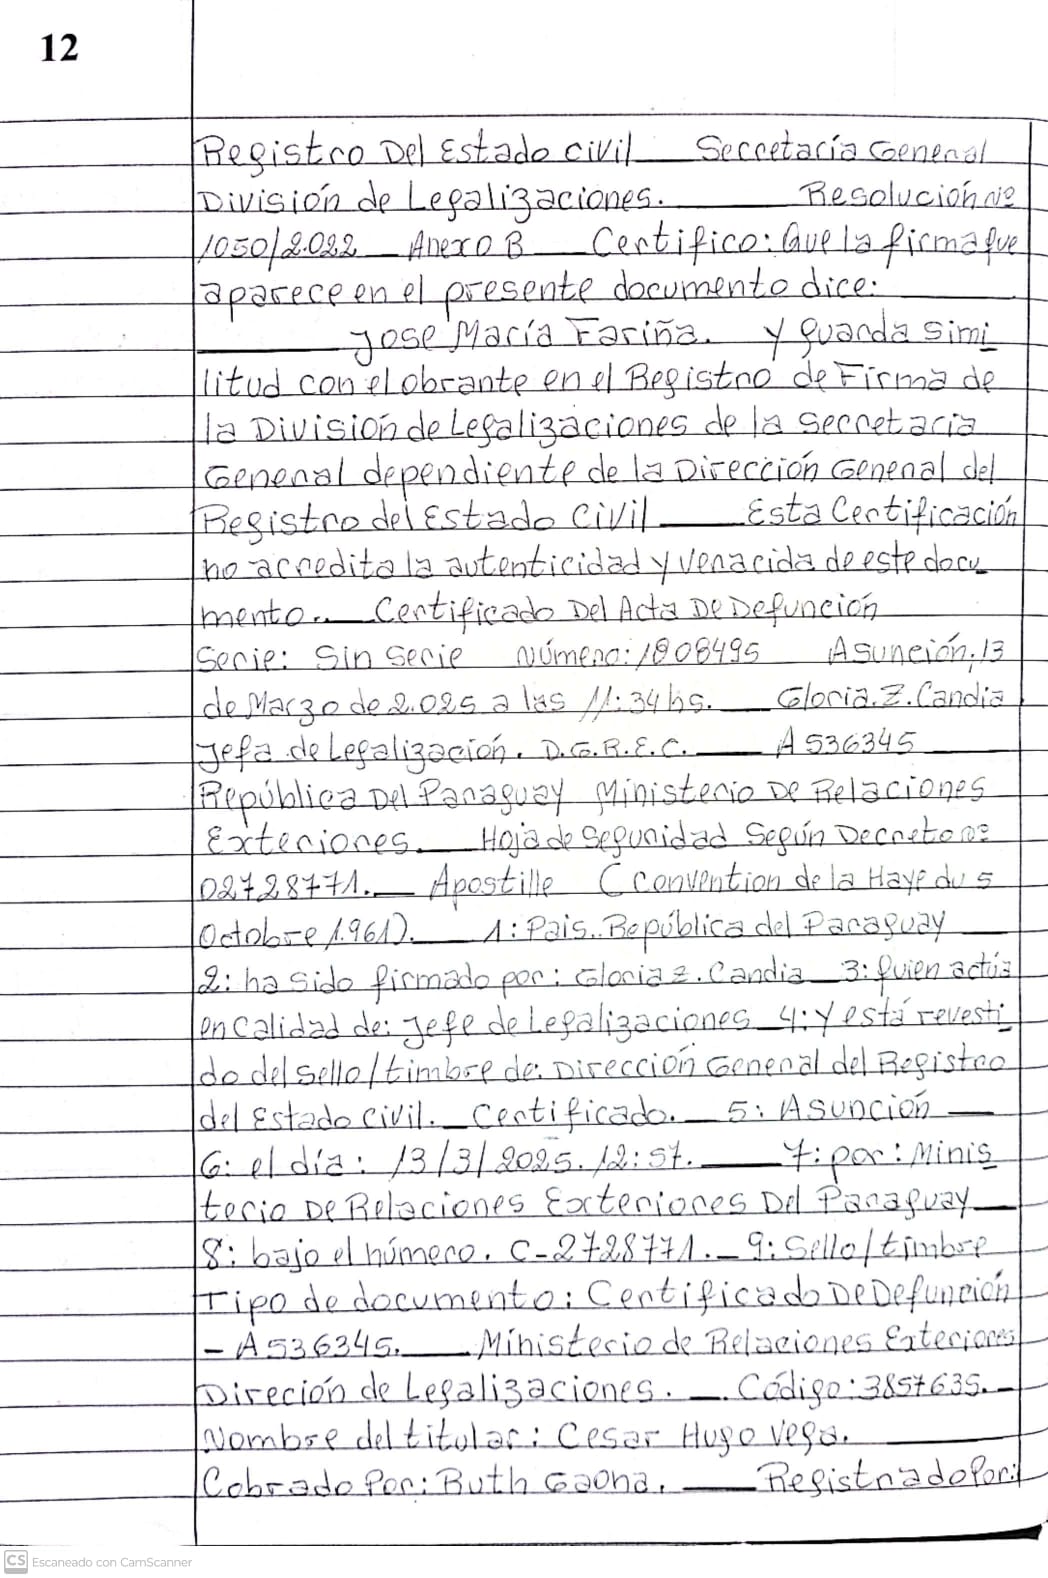 12
Registro Del Estado civil Secretaría General
División de Legalizaciones. Resolución Nº
1050/2.022 Anexo B Certifico: Que la firma que
aparece en el presente documento dice:
Jose María Fariña. y guarda simi
litud con el obrante en el Registro de Firma de
la División de Legalizaciones de la Secretaria
General dependiente de la Dirección General del
Registro del Estado Civil Esta Certificación
no acredita la autenticidad y veracida de este docu
mento.. Certificado Del Acta De Defunción
Serie: Sin Serie Número: 1808495 Asunción; 13
de Marzo de 2.025 a las 11:34 hs. Gloria. Z. Candia
Jefa de Legalización. D.G.R.E.C. A 536345
República Del Paraguay Ministerio De Relaciones
Exteriores. Hoja de Seguridad Según Decreto nº
02728771. Apostille (Convention de la Haye du 5
Octobre 1.961). 1: Pais.. República del Paraguay
2: ha sido firmado por: Gloria z. Candia 3: quien actúa
en calidad de: Jefe de Legalizaciones 4: y está revesti
do del sello/timbre de: Dirección General del Registro
del Estado Civil. Certificado. 5: Asunción
6: el día: 13/3/2025. 12:57. 7: por: Minis
terio De Relaciones Exteriores Del Paraguay
8: bajo el número. C-2728771. 9: Sello/timbre
Tipo de documento: Certificado De Defunción
- A536345. Ministerio de Relaciones Exteriores
Direción de Legalizaciones. Código: 3857635.
Nombre del titular: Cesar Hugo Vega.
Cobrado Por: Ruth Gaona. Registrado Por:
CS Escaneado con CamScanner